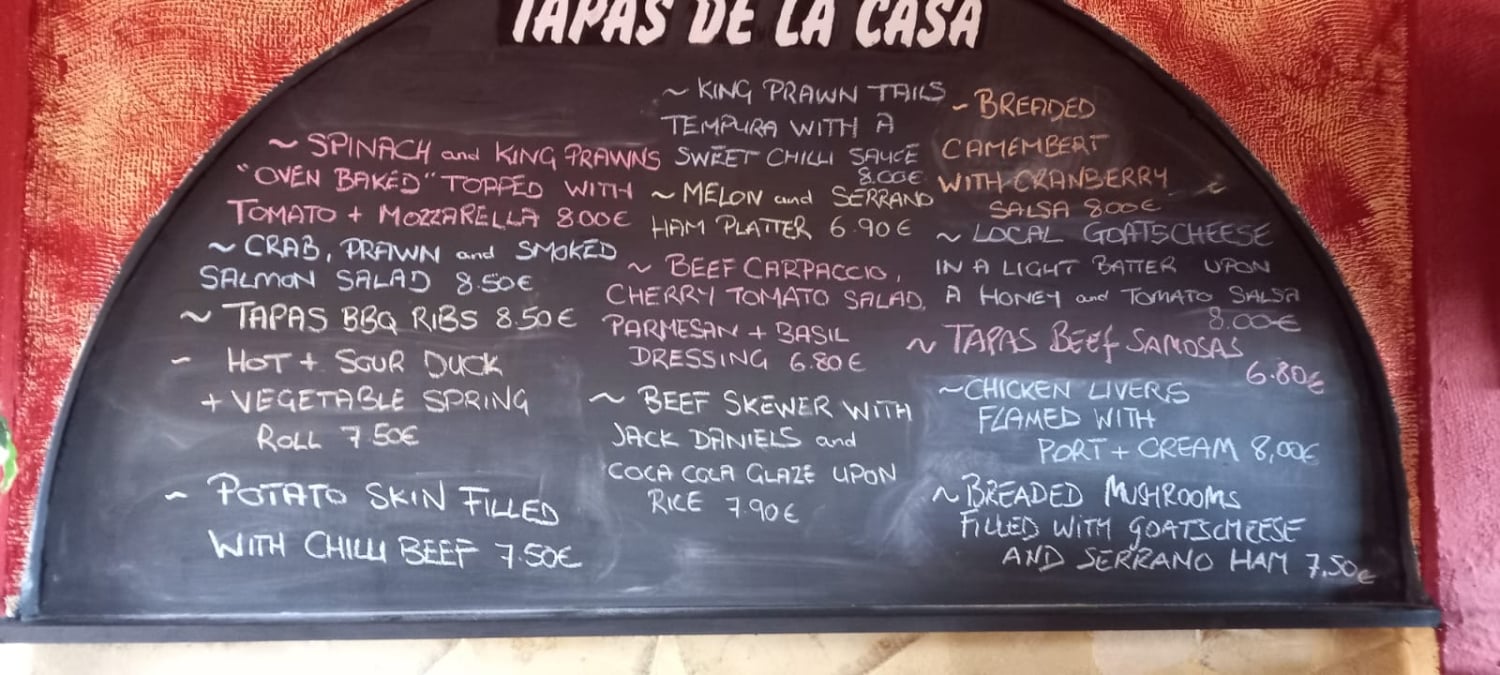 TAPAS DE LA CASA
~ SPINACH and KING PRAWNS
"OVEN BAKED" TOPPED WITH
TOMATO + MOZZARELLA 8.00€
~ CRAB, PRAWN and SMOKED
SALMON SALAD 8.50€
~ TAPAS BBQ RIBS 8.50€
~ HOT + SOUR DUCK
+ VEGETABLE SPRING
ROLL 7.50€
~ POTATO SKIN FILLED
WITH CHILLI BEEF 7.50€
~ KING PRAWN TAILS
TEMPURA WITH A
SWEET CHILLI SAUCE
8.00€
~ MELON and SERRANO
HAM PLATTER 6.90€
~ BEEF CARPACCIO,
CHERRY TOMATO SALAD,
PARMESAN + BASIL
DRESSING 6.80€
~ BEEF SKEWER WITH
JACK DANIELS and
COCA COLA GLAZE UPON
RICE 7.90€
~ BREADED
CAMEMBERT
WITH CRANBERRY
SALSA 8.00€
~ LOCAL GOATSCHEESE
IN A LIGHT BATTER UPON
A HONEY and TOMATO SALSA
8.00€
~ TAPAS BEEF SAMOSAS
6.80€
~ CHICKEN LIVERS
FLAMED WITH
PORT + CREAM 8,00€
~ BREADED MUSHROOMS
FILLED WITH GOATSCHEESE
AND SERRANO HAM 7,50€